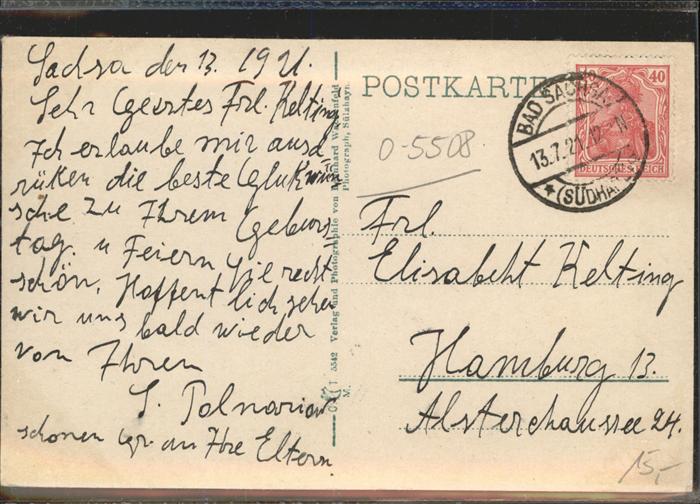 Sachsa den 13. 1921.
Sehr Geertes Frl. Kelting
Ich erlaube mir ausd
rüken die beste Glukwün
sche zu Ihrem Geburs
tag. u Feiern Sie recht
schön, Hoffentlich sehen
wir uns bald wieder
von Ihren
schönen gr. an Ihre Eltern
5542 Verlag und Photographie von Reinhard
Photograph, Sülzhayn.
POSTKARTE
0-5508
40
DEUTSCHES REICH
BAD SACHSA
13.7.21. 12-
(SÜDHARZ)
Frl.
Elisabeht Kelting
Hamburg 13.
Alsterchaussee 24.
15,-